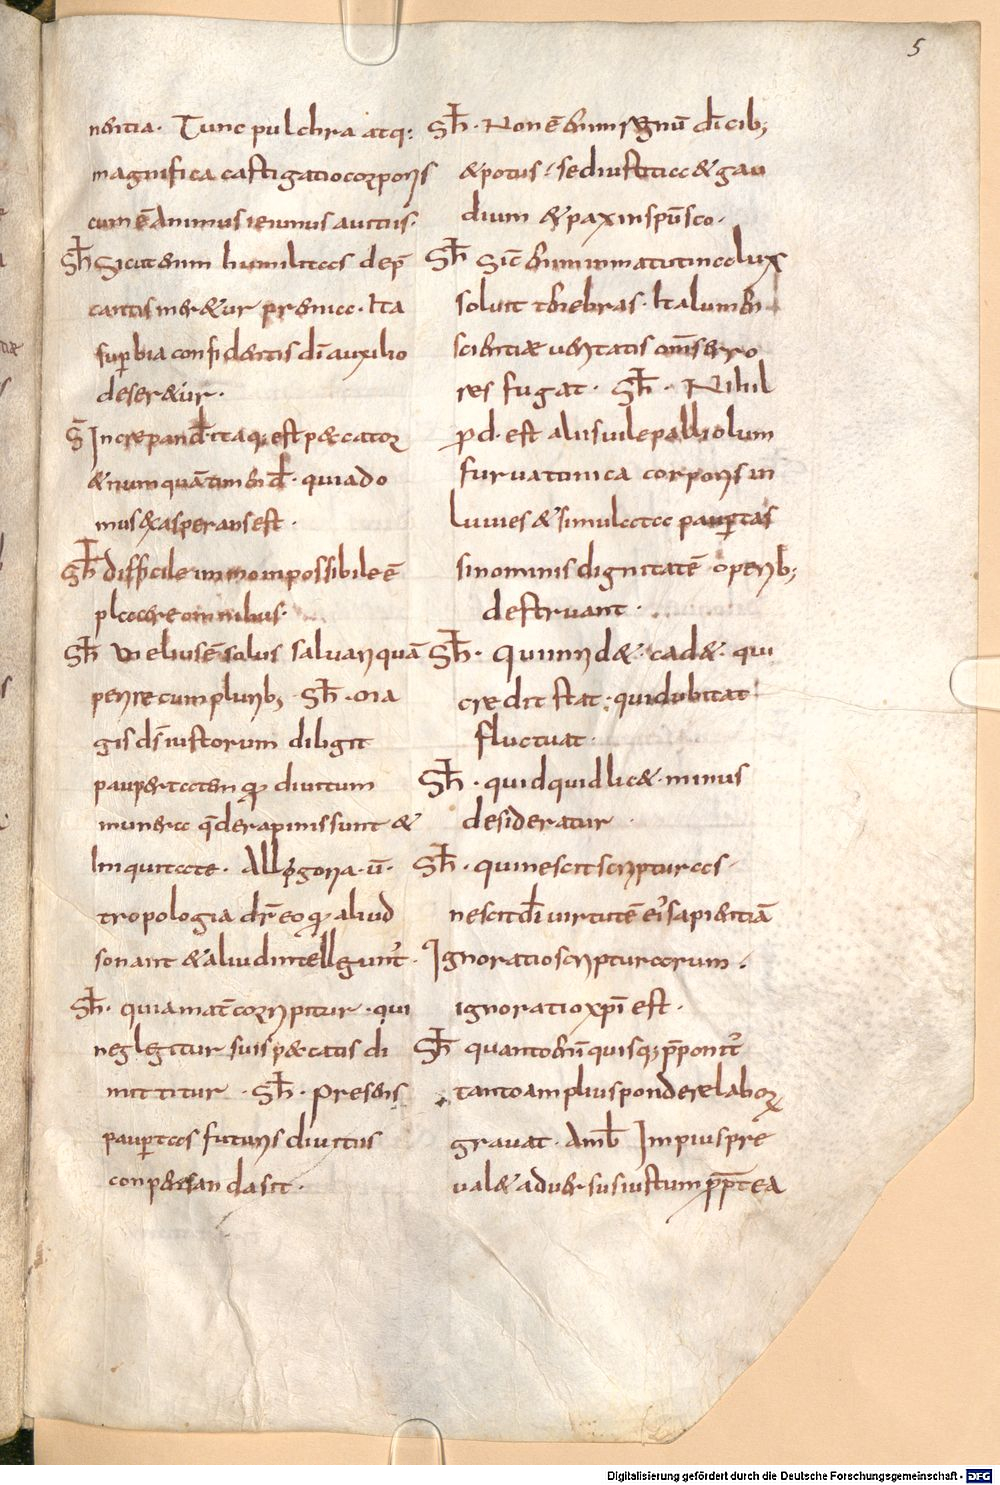 5
nentia. Tunc pulchra atq:
magnifica castigatio corporis
cum ē animus ieiunus a uitiis.
Sh̄ Sicut enim humilitas dep̄
cantis meretur premia. Ita
sup̱bia confidentis dī auxilio
deseretur.
S̄ Increpand̄. itaq; est peccator
& numquā timend̄. quia do
mus exasperans est.
Sh̄ difficile immo impossibile ē
placere omnibus.
Sh̄ Vi elius ē solus saluari quā
perire cum plurib; Sh̄. ma
gis ds̄ iustorum diligit
paupertatem q̄ diuitum
munera q̄ de rapinis sunt &
Iniquitate. Allegoria. ū.
tropologia dr̄ eo q̄ aliud
sonant & aliud intellegunt̄.
Sh̄. qui amat̄ corripitur. qui
neglegitur suis peccatis di
mittitur. Sh̄. Presens
paup̱tas futuris diuitiis
conpensanda sit.
Sh̄. Non ē enim regnū dī cib;
& potus. sed iustitia & gau
dium & pax in spū sco.
Sh̄ Sic̄ enim matutina lux
soluit tenebras. Ita lumen
scientiæ ueritatis om̄s erro
res fugat. Sh̄. Nihil
p̱d. est alicui uile palliolum
furua tunica corporis in
luuies & simulata paup̱tas
si nominis dignitatē operib;
destruant.
Sh̄. qui inridet. cadet. qui
credit stat. qui dubitat
fluctuat.
Sh̄. quidquid licet. minus
desideratur.
Sh̄. qui nescit scripturas.
nescit dī uirtutē ei᾽ sapientiā
Ignoratio scripturarum.
ignoratio xp̄i est.
Sh̄ quanto enī quisq; p̄ponit̄
tanto amplius pondere labor̄
grauat. Amb̄ Impius pre
ualet aduersus iustum p̱p̱tea
Digitalisierung gefördert durch die Deutsche Forschungsgemeinschaft - DFG